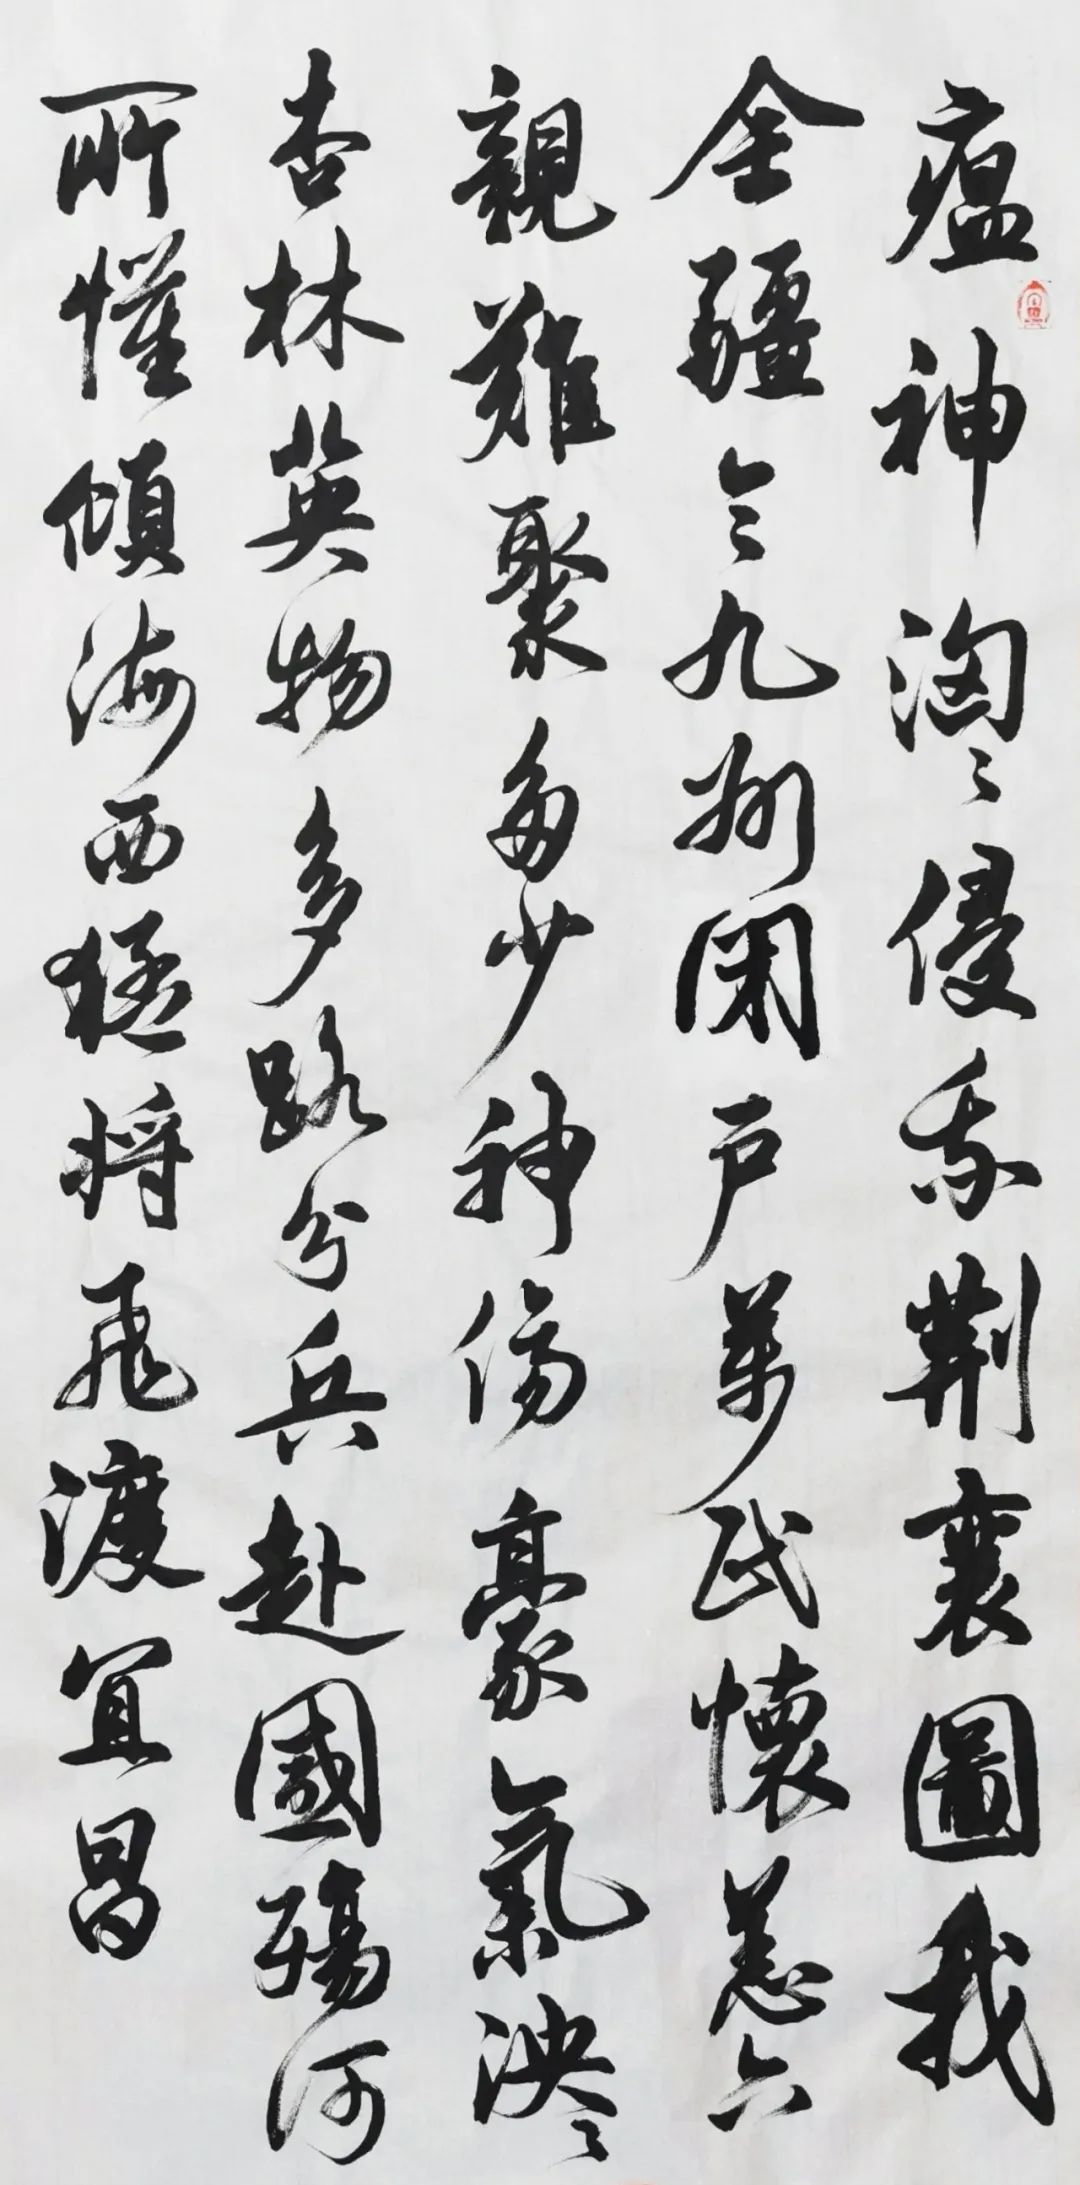 瘟神洶々侵我荆襄圖我
全疆令九州閉户萬民懷恙六
親難聚多少神傷豪氣泱々
杏林英物多路分兵赴國殤何
所懼傾海西猛將飛渡宜昌